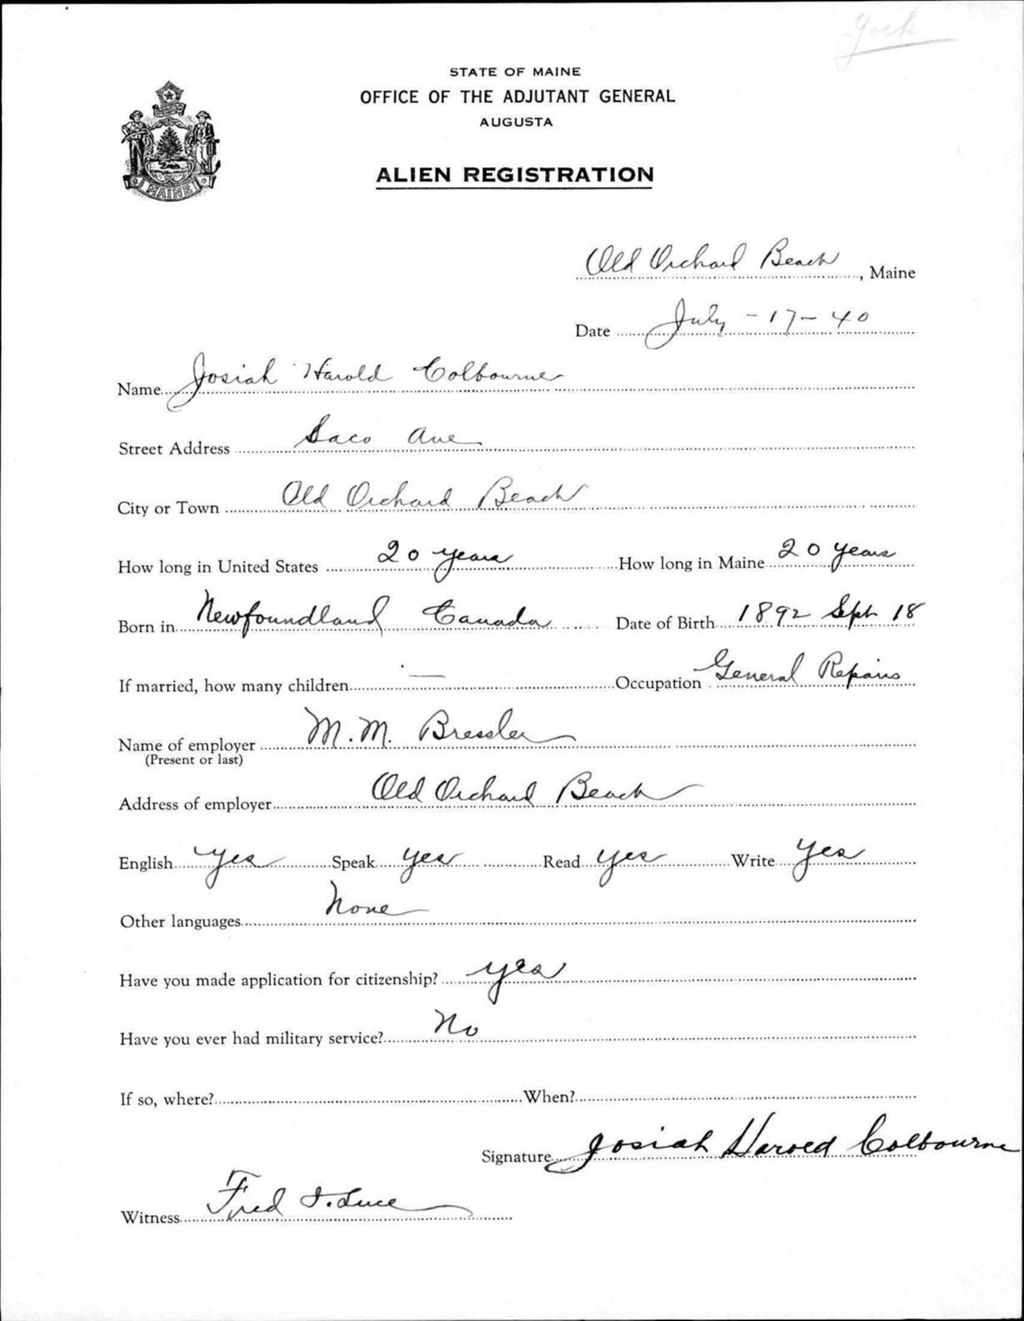 York
STATE OF MAINE
OFFICE OF THE ADJUTANT GENERAL
AUGUSTA
MAINE
ALIEN REGISTRATION
Old Orchard Beach, Maine
Date July -17- 40
Name Josiah Harold Colbourne
Street Address Saco Ave
City or Town Old Orchard Beach
How long in United States 20 years How long in Maine 20 years
Born in Newfoundland Canada Date of Birth 1892 Sept 18
If married, how many children — Occupation General Repairs
Name of employer M. M. Bressler
(Present or last)
Address of employer Old Orchard Beach
English yes Speak yes Read yes Write yes
Other languages None
Have you made application for citizenship? yes
Have you ever had military service? No
If so, where? When?
Signature Josiah Harold Colbourne
Witness Fred I. Luce